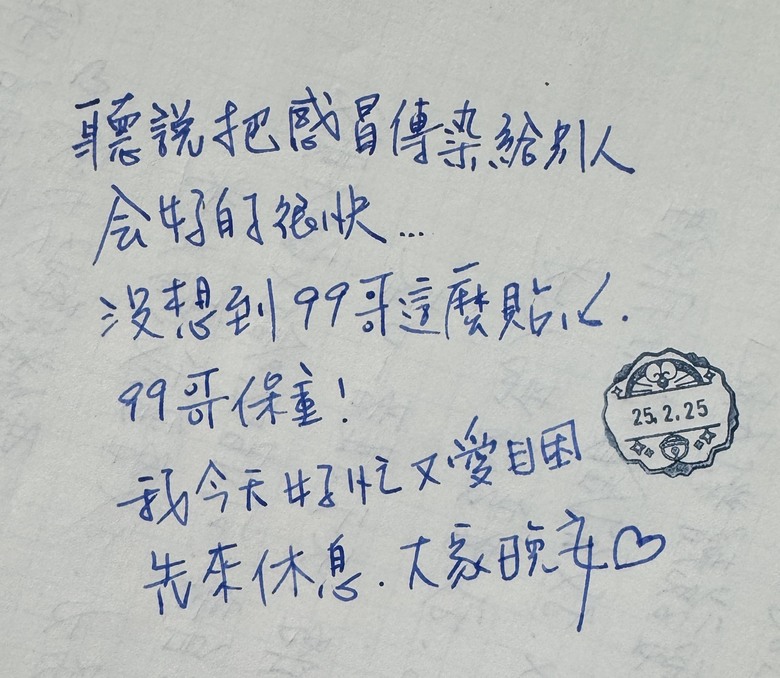 聽說把感冒傳染給別人
会好的很快...
沒想到99哥這麼貼心.
99哥保重!
我今天好忙又愛睏
先來休息.大家晚安♡
25.2.25